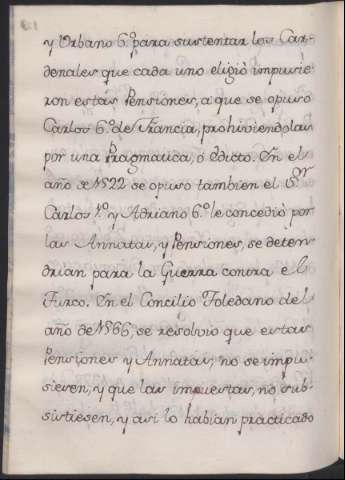 y Urbano 6.º para sustentar los Car-
denales que cada uno eligiò impusie-
ron estas Pensiones, a que se opuso
Carlos 6.º de Francia, prohiviendolas
por una Pragmatica, ó Edicto. En el
año de 1522 se opuso tambien el S.or
Carlos 1.º y Adriano 6.º le concediò por
las Annatas, y Pensiones, se deten-
drian para la Guerra contra el
Turco. En el Concilio Toledano del
año de 1566, se resolvio que estas
Pensiones y Annatas, no se impu-
siesen, y que las impuestas, no sub-
sistiesen, y asi lo habian practicado